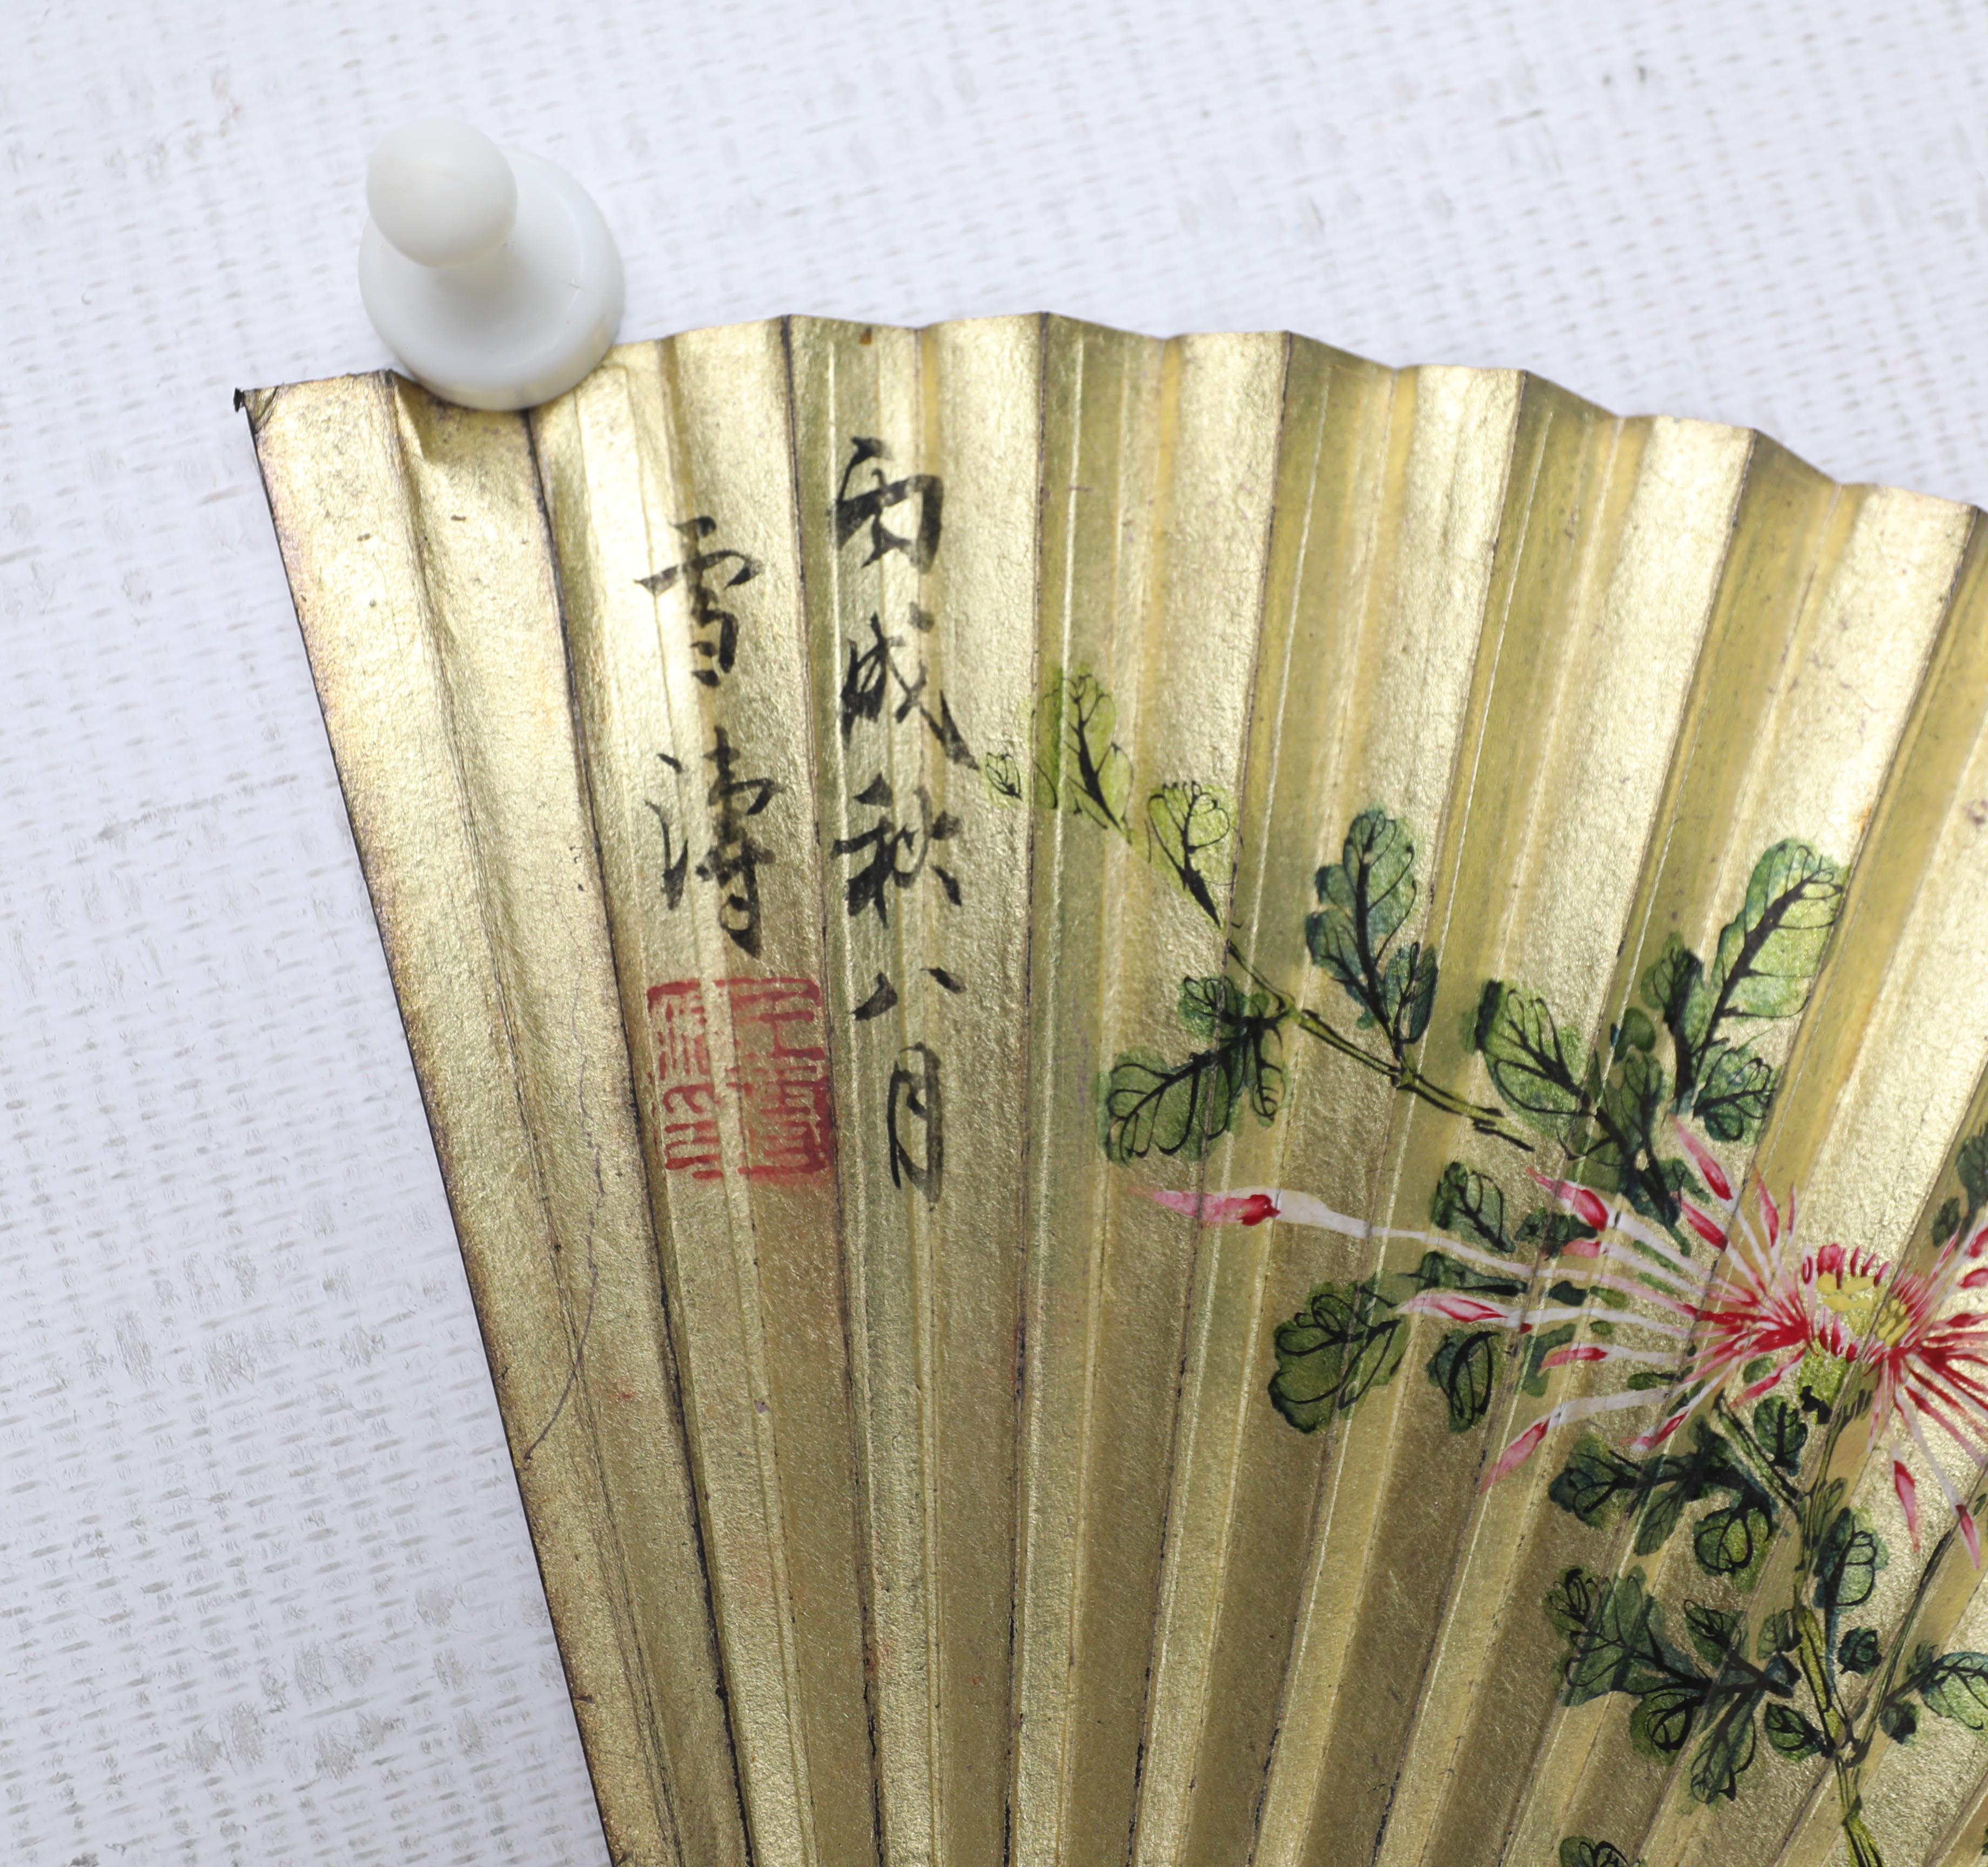 丙戌秋八月
雪涛